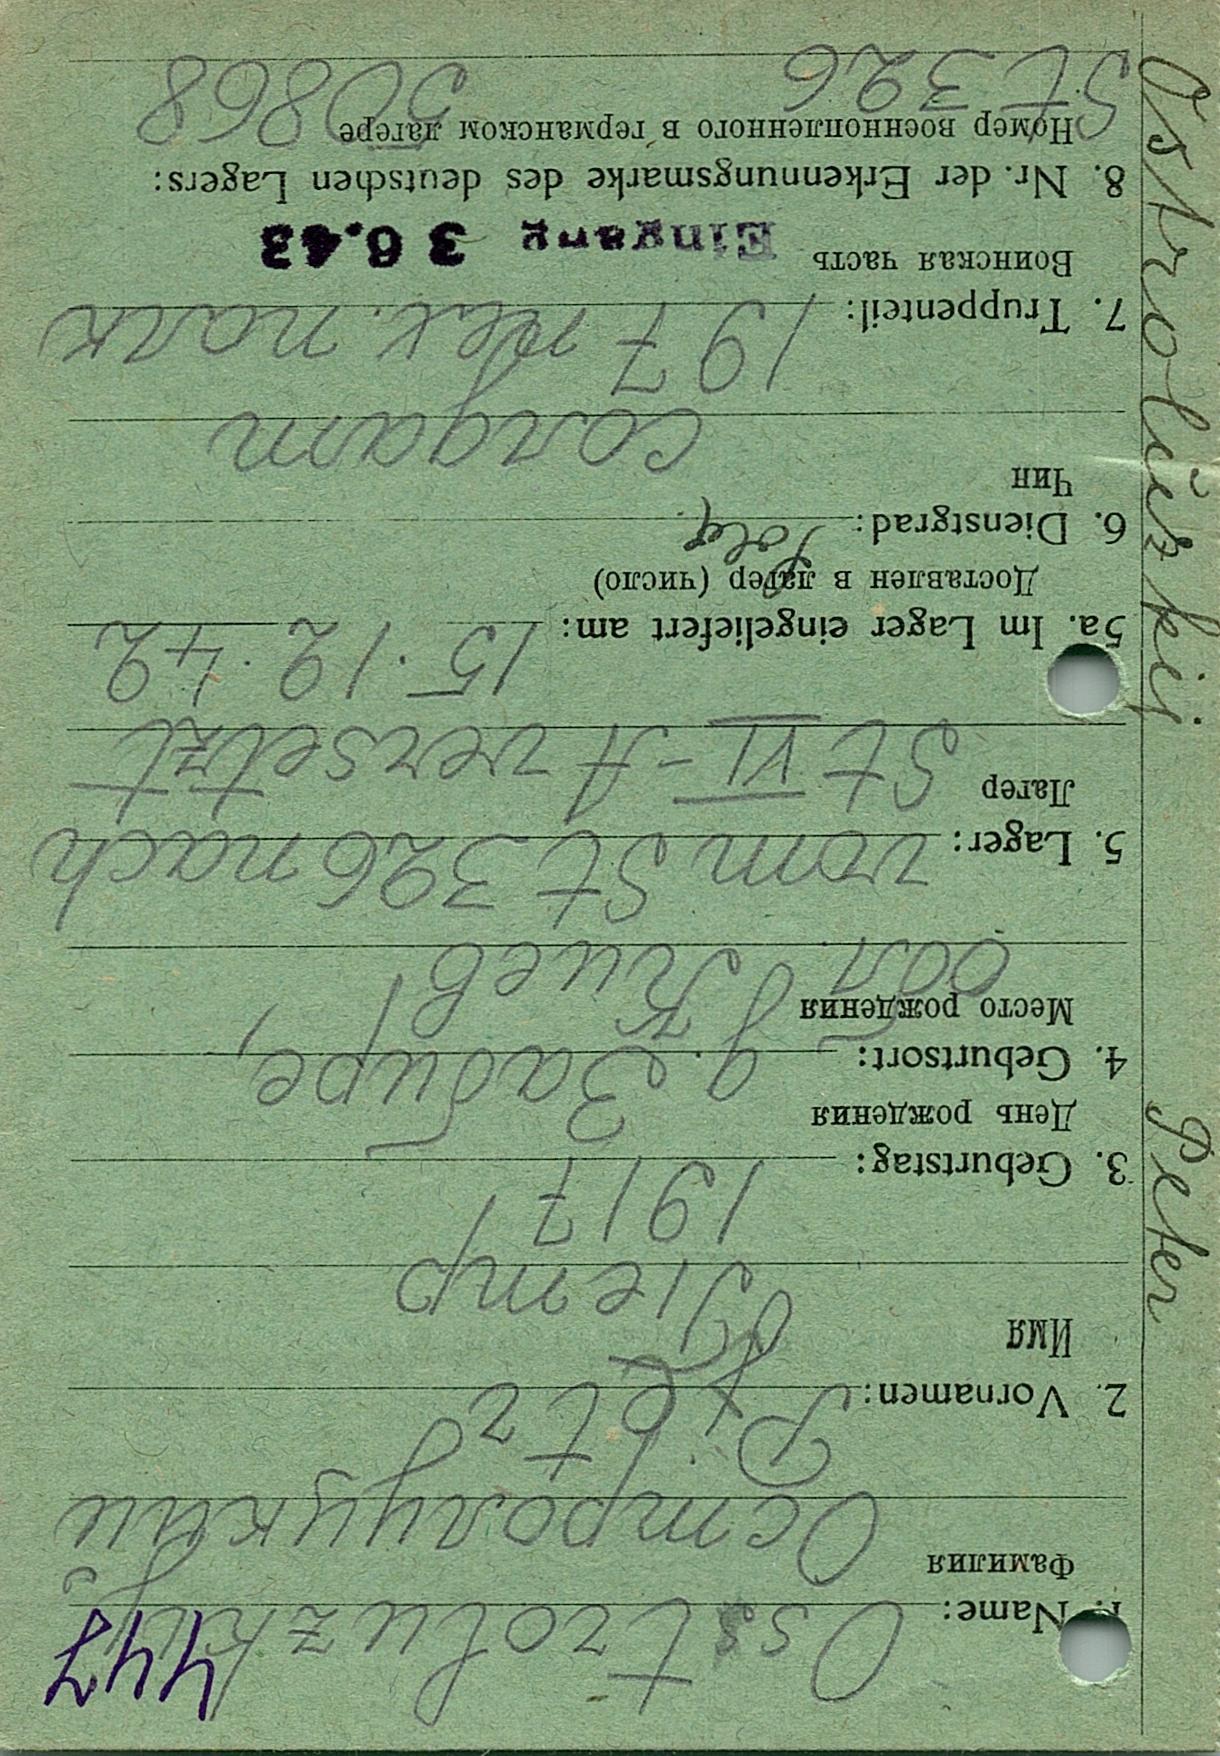 447
1. Name: Osstroluzkij
Фамилия Остролуцкий
2. Vornamen: Pjetr
Имя Пётр
3. Geburtstag: 1917
День рождения
4. Geburtsort: д. Забире,
Место рождения обл Киев
5. Lager: vom St 326 nach
Лагер St VI-A versetzt
5a. Im Lager eingeliefert am: 15.12.42
Доставлен в лагер (число)
6. Dienstgrad: Sold.
Чин солдат
7. Truppenteil: 197 полк
Воинская часть Eingang 3 6.43
8. Nr. der Erkennungsmarke des deutschen Lagers:
Номер военнопленного в германском лагере
St 326 50868
Ostroluzkij Peter